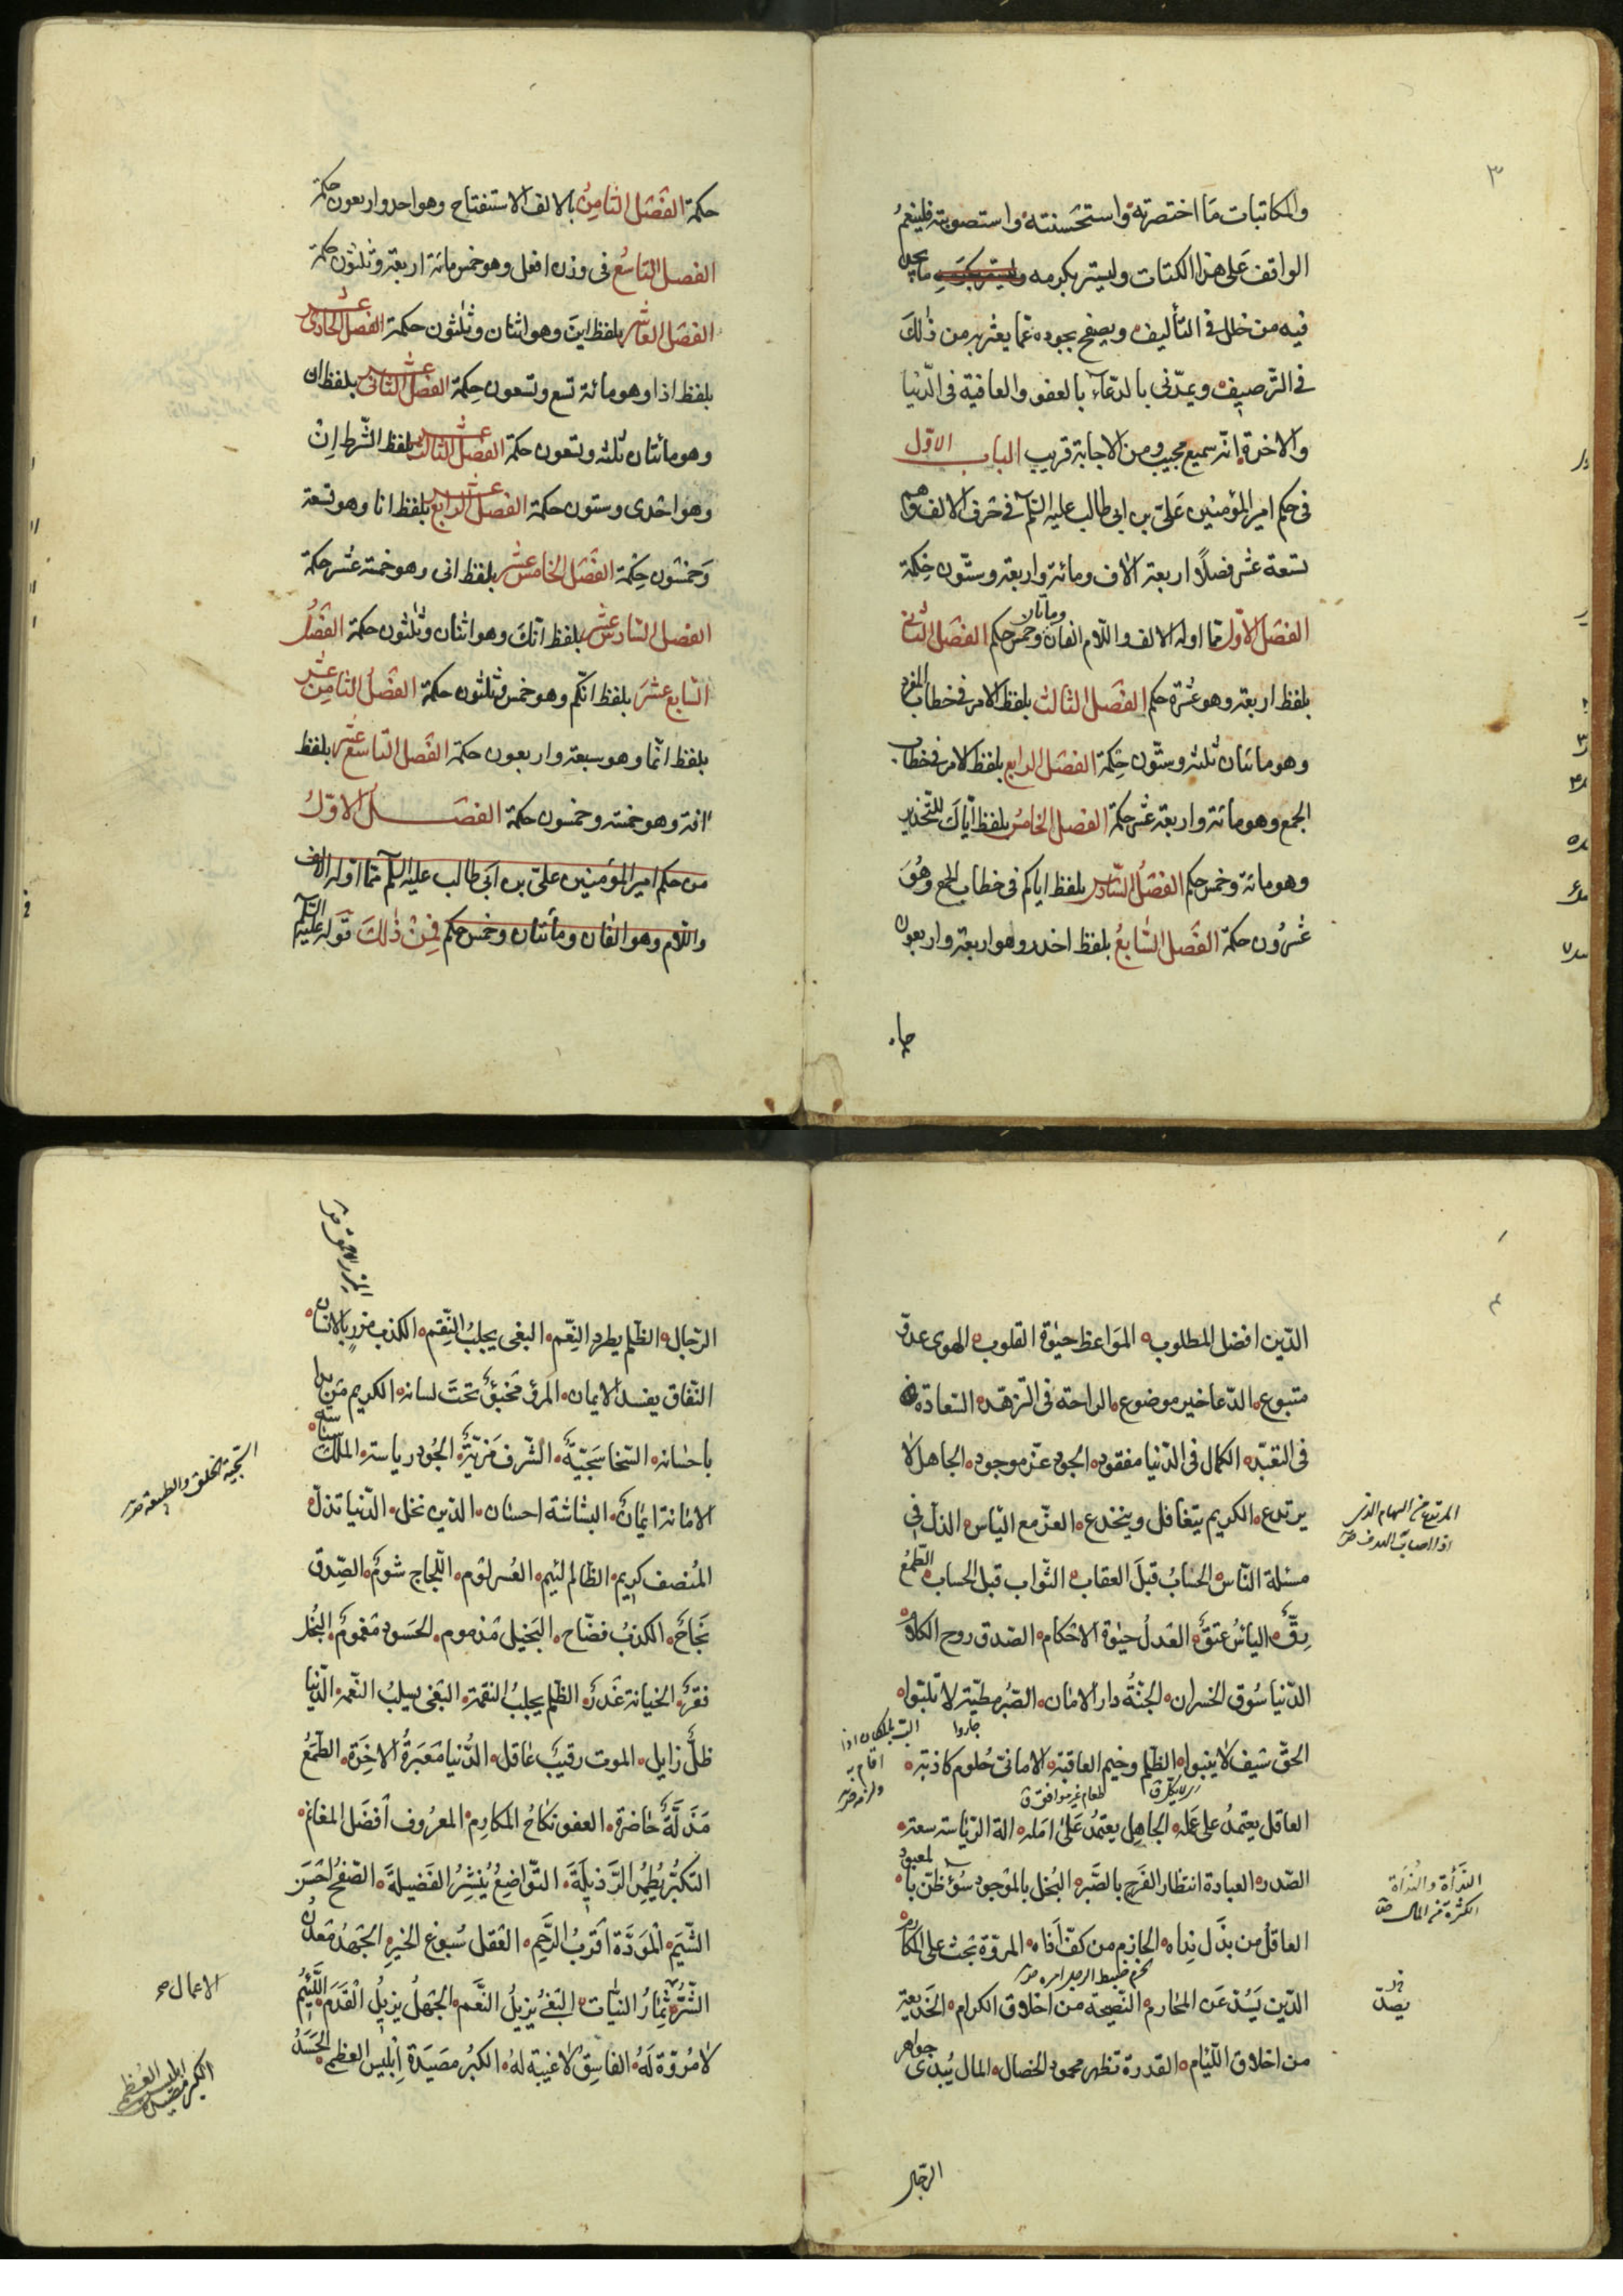 ٣
والمكاتبات ما اختصرته واستحسنته واستصوبته فلينعم
الواقف على هذا الكتاب وليستر بكرمه ما يجد
فيه من خلل في التأليف ويصفح بجوده عما يعثر به من ذلك
في الترصيف ويمدني بالدعاء بالعفو والعافية في الدنيا
والاخرة انه سميع مجيب ومن الاجابة قريب الباب الاول
في حكم امير المؤمنين علي بن ابي طالب عليه السلم في حرف الالف وهو
تسعة عشر فصلًا اربعة الاف ومائة واربعة وستون حكمة
الفصل الاول مما اوله الالف واللام الفان ومائتان وخمس حكم الفصل الثاني
بلفظ اربعة وهو عشرة حكم الفصل الثالث بلفظ الامر في خطاب المفرد
وهو مائتان ثلثة وستون حكمة الفصل الرابع بلفظ الامر في خطاب
الجمع وهو مائة واربعة عشر حكمة الفصل الخامس بلفظ اياك للتحذير
وهو مائة وخمس حكم الفصل السادس بلفظ اياكم في خطاب الجمع وهو
عشرون حكمة الفصل السابع بلفظ احذر وهو اربعة واربعون
حكمة الفصل الثامن بالالف الاستفتاح وهو احد واربعون حكمة
الفصل التاسع في وزن افعل وهو خمس مائة اربعة وثلثون حكمة
الفصل العاشر بلفظ اين وهو اثنان وثلثون حكمة الفصل الحادي عشر
بلفظ اذا وهو مائة تسع وتسعون حكمة الفصل الثاني عشر بلفظ ان
وهو مائتان ثلثه وتسعون حكمة الفصل الثالث عشر بلفظ الشرط ان
وهو احدى وستون حكمة الفصل الرابع عشر بلفظ انا وهو تسعة
وخمسون حكمة الفصل الخامس عشر بلفظ اني وهو خمسة عشر حكمة
الفصل السادس عشر بلفظ انك وهو اثنان وثلثون حكمة الفصل
السابع عشر بلفظ انكم وهو خمس وثلثون حكمة الفصل الثامن عشر
بلفظ انما وهو سبعة واربعون حكمة الفصل التاسع عشر بلفظ
انه وهو خمسة وخمسون حكمة الفصل الاول
من حكم امير المؤمنين علي بن ابي طالب عليه السلم مما اوله الالف
واللام وهو الفان ومائتان وخمس حكم فمن ذلك قوله عليه السلم
٤
الدين افضل المطلوب المواعظ حيوة القلوب الهوى عدو
متبوع الدعا خير موضوع الراحة في التزهد السعادة
في التعبد الكمال في الدنيا مفقود الجود عز موجود الجاهل لا
يرتدع الكريم يتغافل وينخدع العز مع الياس الذل في
مسئلة الناس الحساب قبل العقاب الثواب قبل الحساب الطمع
رق الياس عتق العدل حيوة الاحكام الصدق روح الكلام
الدنيا سوق الخسران الجنة دار الامان الصبر مطية لا تكبوا
الحق سيف لا ينبوا الظلم وخيم العاقبة الاماني حلوم كاذبة
العاقل يعتمد على عمله الجاهل يعتمد على امله الة الرياسة سعة
الصدر العبادة انتظار الفرج بالصبر البخل بالموجود سؤ ظن با
لمعبود
العاقل من بذل نداه الحازم من كف اذاه المروة تحث على المكارم
الدين يصد عن المحارم النصيحة من اخلاق الكرام الخديعة
من اخلاق اللئام القدرة تظهر محمود الخصال المال يبدى جواهر
المرتدع من السهام الذي
اذا اصاب الهدف
الكثرة من المال
يصد
الرجال
الرجال الظلم يطرد النعم البغى يجلب النقم الكذب مزر بالانسان
النفاق يفسد الايمان المرؤ مخبؤ تحت لسانه الكريم من بدا
باحسانه السخا سجية الشرف مزية الجود رياسة الملك سياسة
الامانة ايمان البشاشة احسان الدين يجل الدنيا تذل
المنصف كريم الظالم لئيم العسر لؤم اللجاج شوم الصدق
نجاح الكذب فضاح البخيل مذموم الحسود مغموم البخل
فقر الخيانة غدر الظلم يجلب النقمة البغى يسلب النعمة الدنيا
ظل زايل الموت رقيب غافل الدنيا معبرة الاخرة الطمع
مذلة حاضرة العفو نكاح المكارم المعروف افضل المغانم
التكبر يظهر الرذيلة التواضع ينشر الفضيلة الصفح احسن
الشيم المودة اقرب الرحم العقل ينبوع الخير الجهل معدن
الشر ثمار النيات البغى يزيل النعم الجهل يزيل القدم اللئيم
لا مروة له الفاسق لا غيبة له الكبر مصيدة ابليس العظمى الحسد
السجية الخلق والطبيعة
الاعمال
الكبر مصيدة
ابليس العظمى